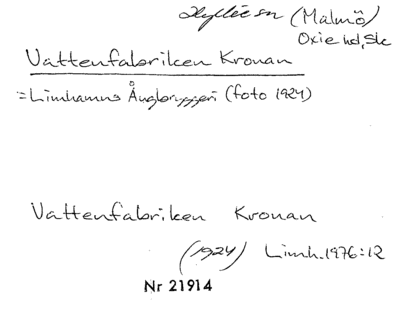 Hyllie sn (Malmö)
Oxie hd, Sk
Vattenfabriken Kronan
= Limhamns Ångbryggeri (foto 1924)
Vattenfabriken Kronan
(1924) Limh. 1976:12
Nr 21914